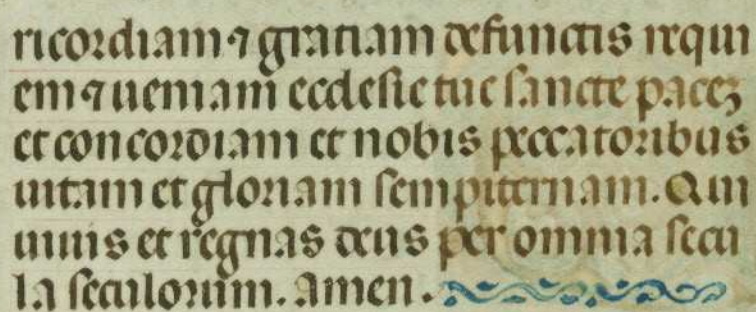 ricordiam ⁊ gratiam defunctis requi
em ⁊ ueniam ecclesie tue sancte paceꝫ
et concordiam et nobis peccatoribus
uitam et gloriam sempiternam. Qui
uiuis et regnas deus per omnia secu
la seculorum. amen.